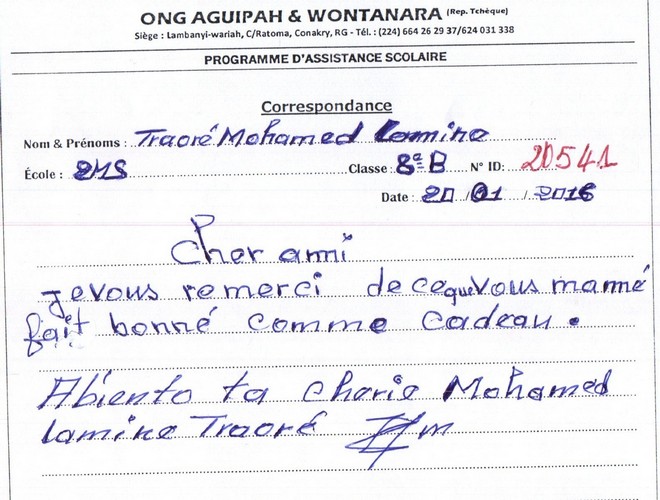 ONG AGUIPAH & WONTANARA (Rep. Tchèque)
Siège : Lambanyi-wariah, C/Ratoma, Conakry, RG - Tél. : (224) 664 26 29 37/624 031 338
PROGRAMME D'ASSISTANCE SCOLAIRE
Correspondance
Nom & Prénoms : Traoré Mohamed Lamine
École : EMS Classe : 8e B N° ID: 20541
Date : 20 / 01 / 2016
Cher ami
je vous remerci de ce que vous manmé
fait bonné comme cadeau.
Abiento ta cherie Mohamed
lamine Traoré